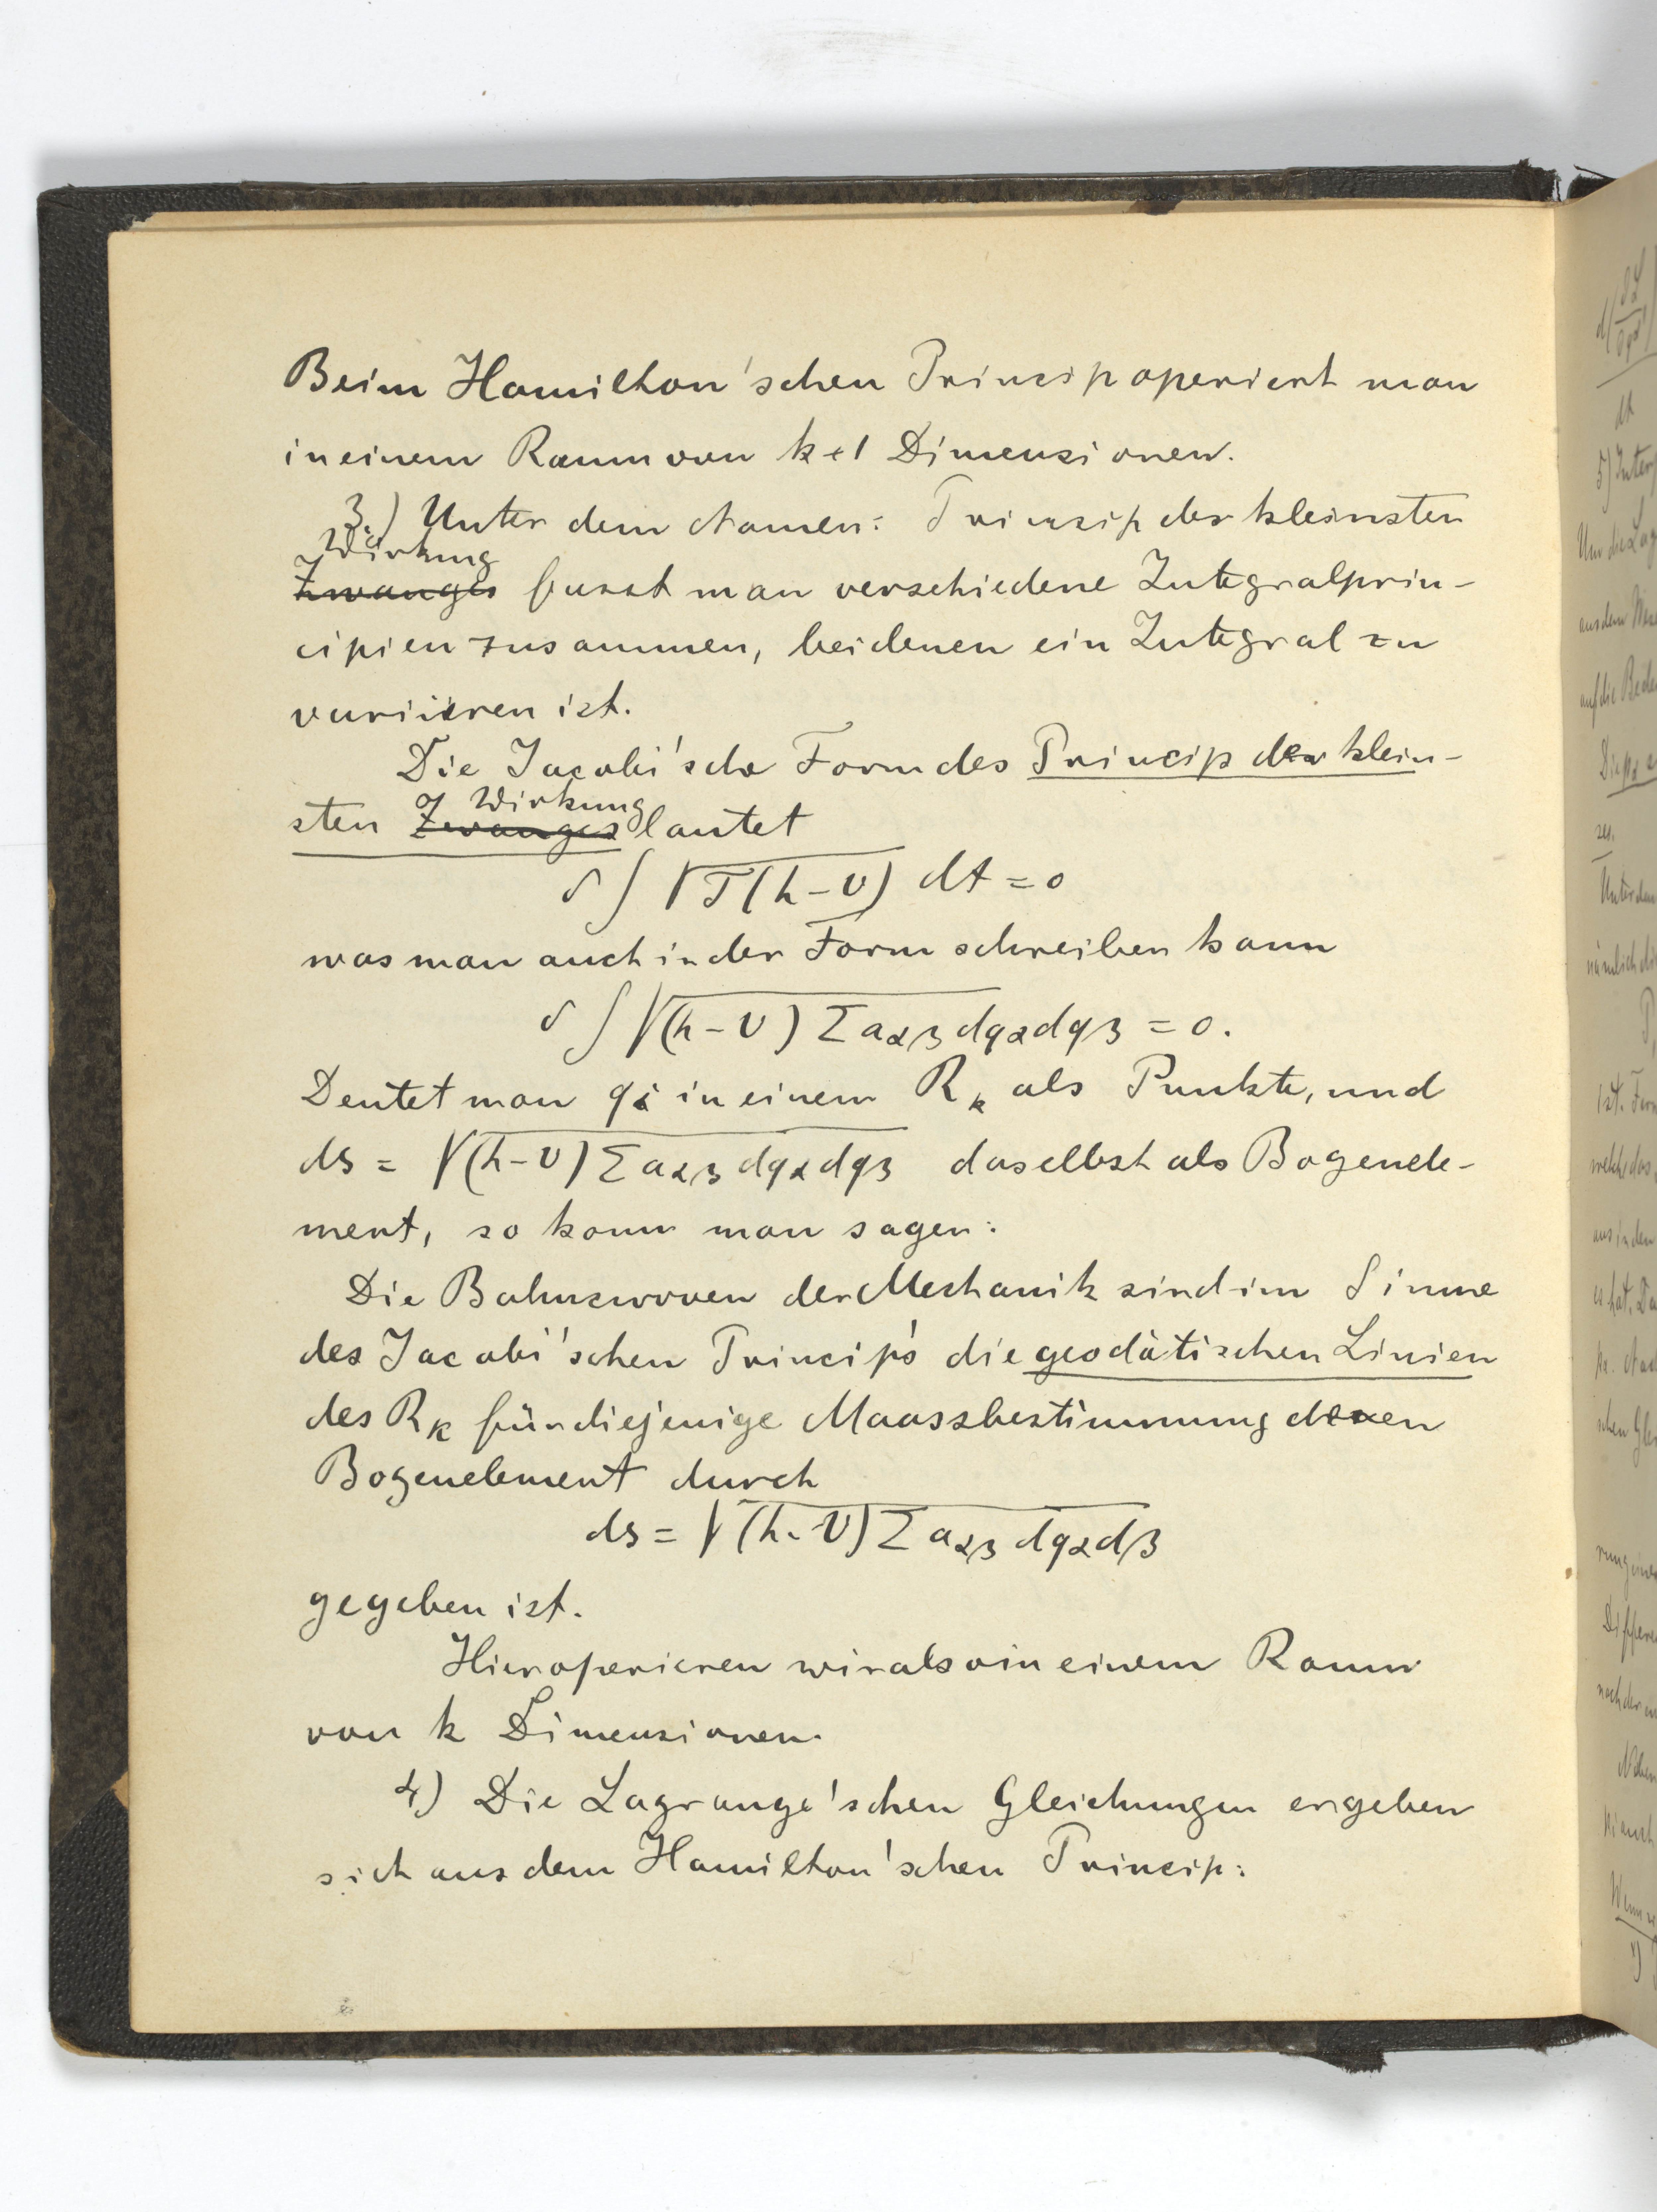 Beim Hamilton'schen Princip operiert man
in einem Raum von k+1 Dimensionen.
3.) Unter dem Namen: Princip der kleinsten
Wirkung
Zwanges fasst man verschiedene Integralprin-
cipien zusammen, bei denen ein Integral zu
variieren ist.
Die Jacobi'sche Form des Princip der klein-
Wirkung
sten Zwanges lautet
δ ∫ √T(h-U) dt = 0
was man auch in der Form schreiben kann
δ ∫ √(h-U) Σ aαβ dqα dqβ = 0.
Deutet man qi in einem Rk als Punkte, und
ds = √(h-U) Σ aαβ dqα dqβ daselbst als Bogenele-
ment, so kann man sagen:
Die Bahncurven der Mechanik sind im Sinne
des Jacobi'schen Princip's die geodätischen Linien
des Rk für diejenige Maassbestimmung deren
Bogenelement durch
ds = √(h-U) Σ aαβ dqα dβ
gegeben ist.
Hier operieren wir also in einem Raum
von k Dimensionen.
4) Die Lagrange'schen Gleichungen ergeben
sich aus dem Hamilton'schen Princip: